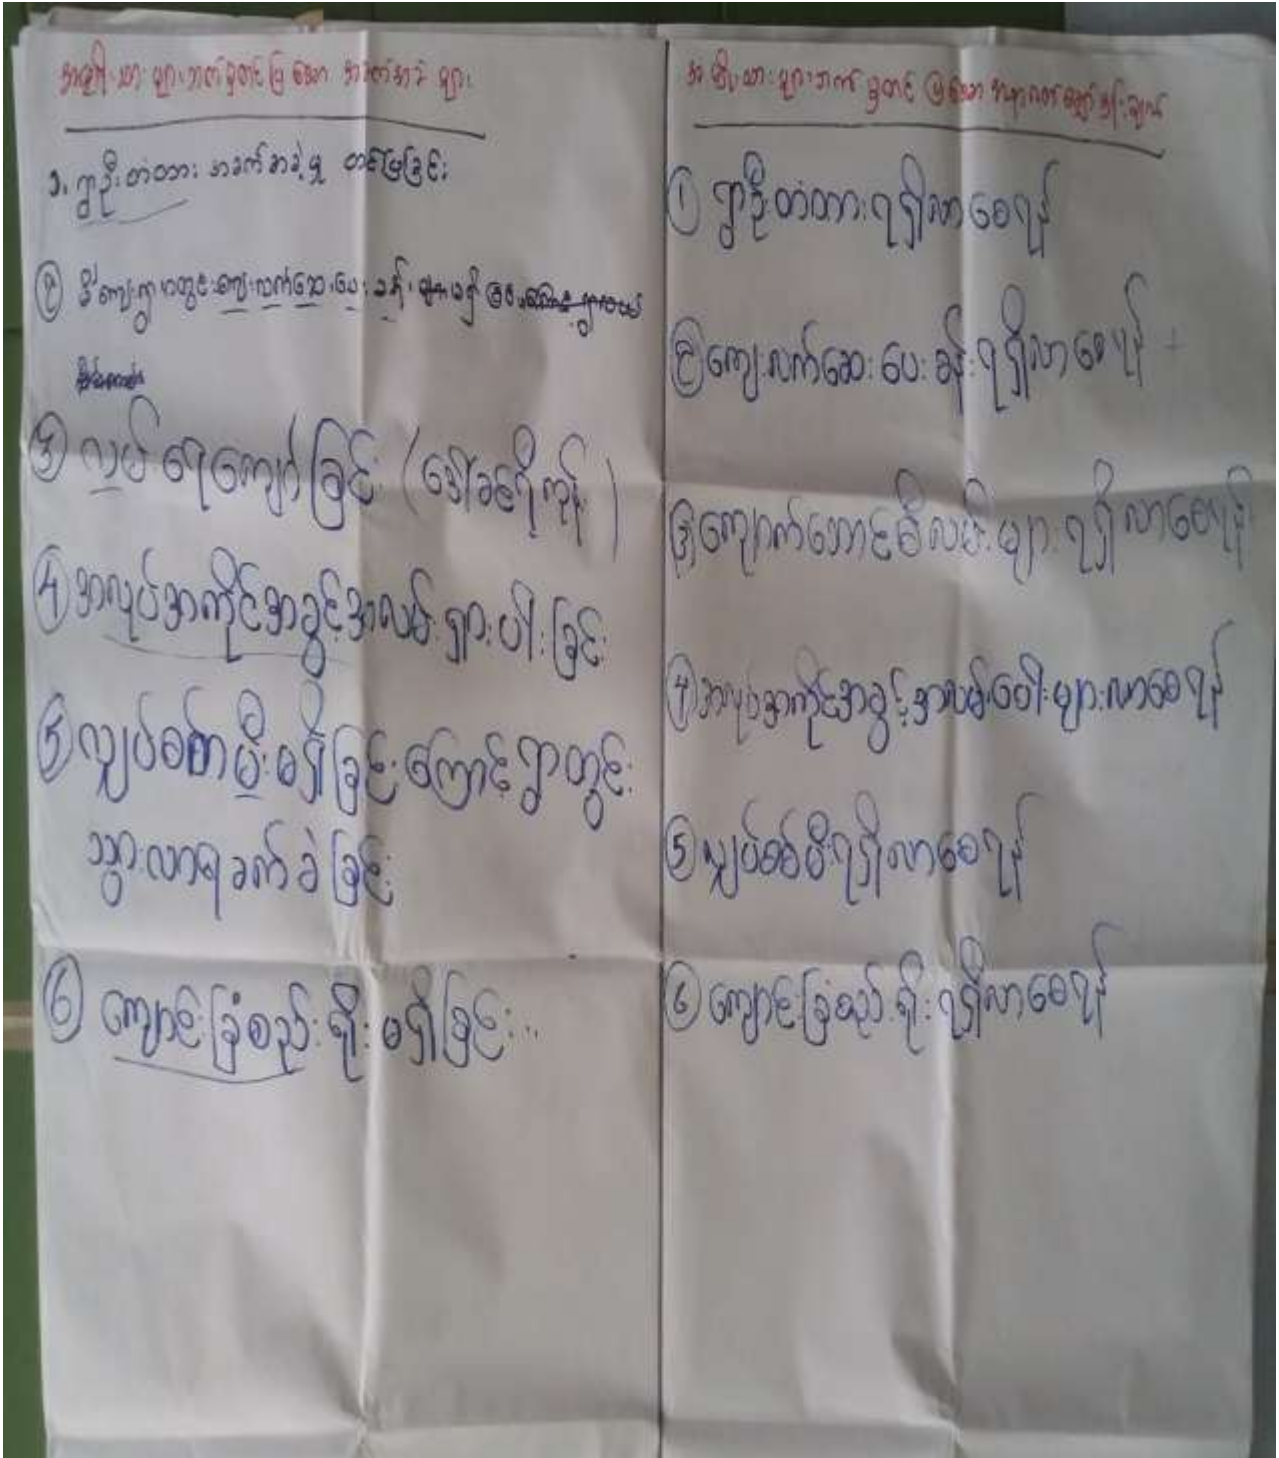 အမျိုးသားများဘက်မှတင်ပြသော အခက်အခဲများ
၁. ရွာဦးတံတား အခက်အခဲမှု တင်ပြခြင်း
၂ မိကျေးရွာတွင် ကျေးလက်ဆေးပေးခန်း မရှိခြင်း
၃ လမ်းရေကျော်ခြင်း (ဒေါ်ခင်ရီကုန်း)
၄ အလုပ်အကိုင်အခွင့်အလမ်းရှားပါးခြင်း
၅ လျှပ်စစ်မီးမရှိခြင်းကြောင့် ရွာတွင်း
သွားလာရခက်ခဲခြင်း
၆ ကျောင်းခြံစည်းရိုးမရှိခြင်း..
အမျိုးသားများဘက်မှတင်ပြသော အနာဂတ်မျှော်မှန်းချက်
၁ ရွာဦးတံတားရရှိလာစေရန်
၂ ကျေးလက်ဆေးပေးခန်းရရှိလာစေရန်
၃ ကျောက်ချောင်စီလမ်းများရရှိလာစေရန်
၄ အလုပ်အကိုင်အခွင့်အလမ်းပေါများလာစေရန်
၅ လျှပ်စစ်မီးရရှိလာစေရန်
၆ ကျောင်းခြံစည်းရိုးရရှိလာစေရန်